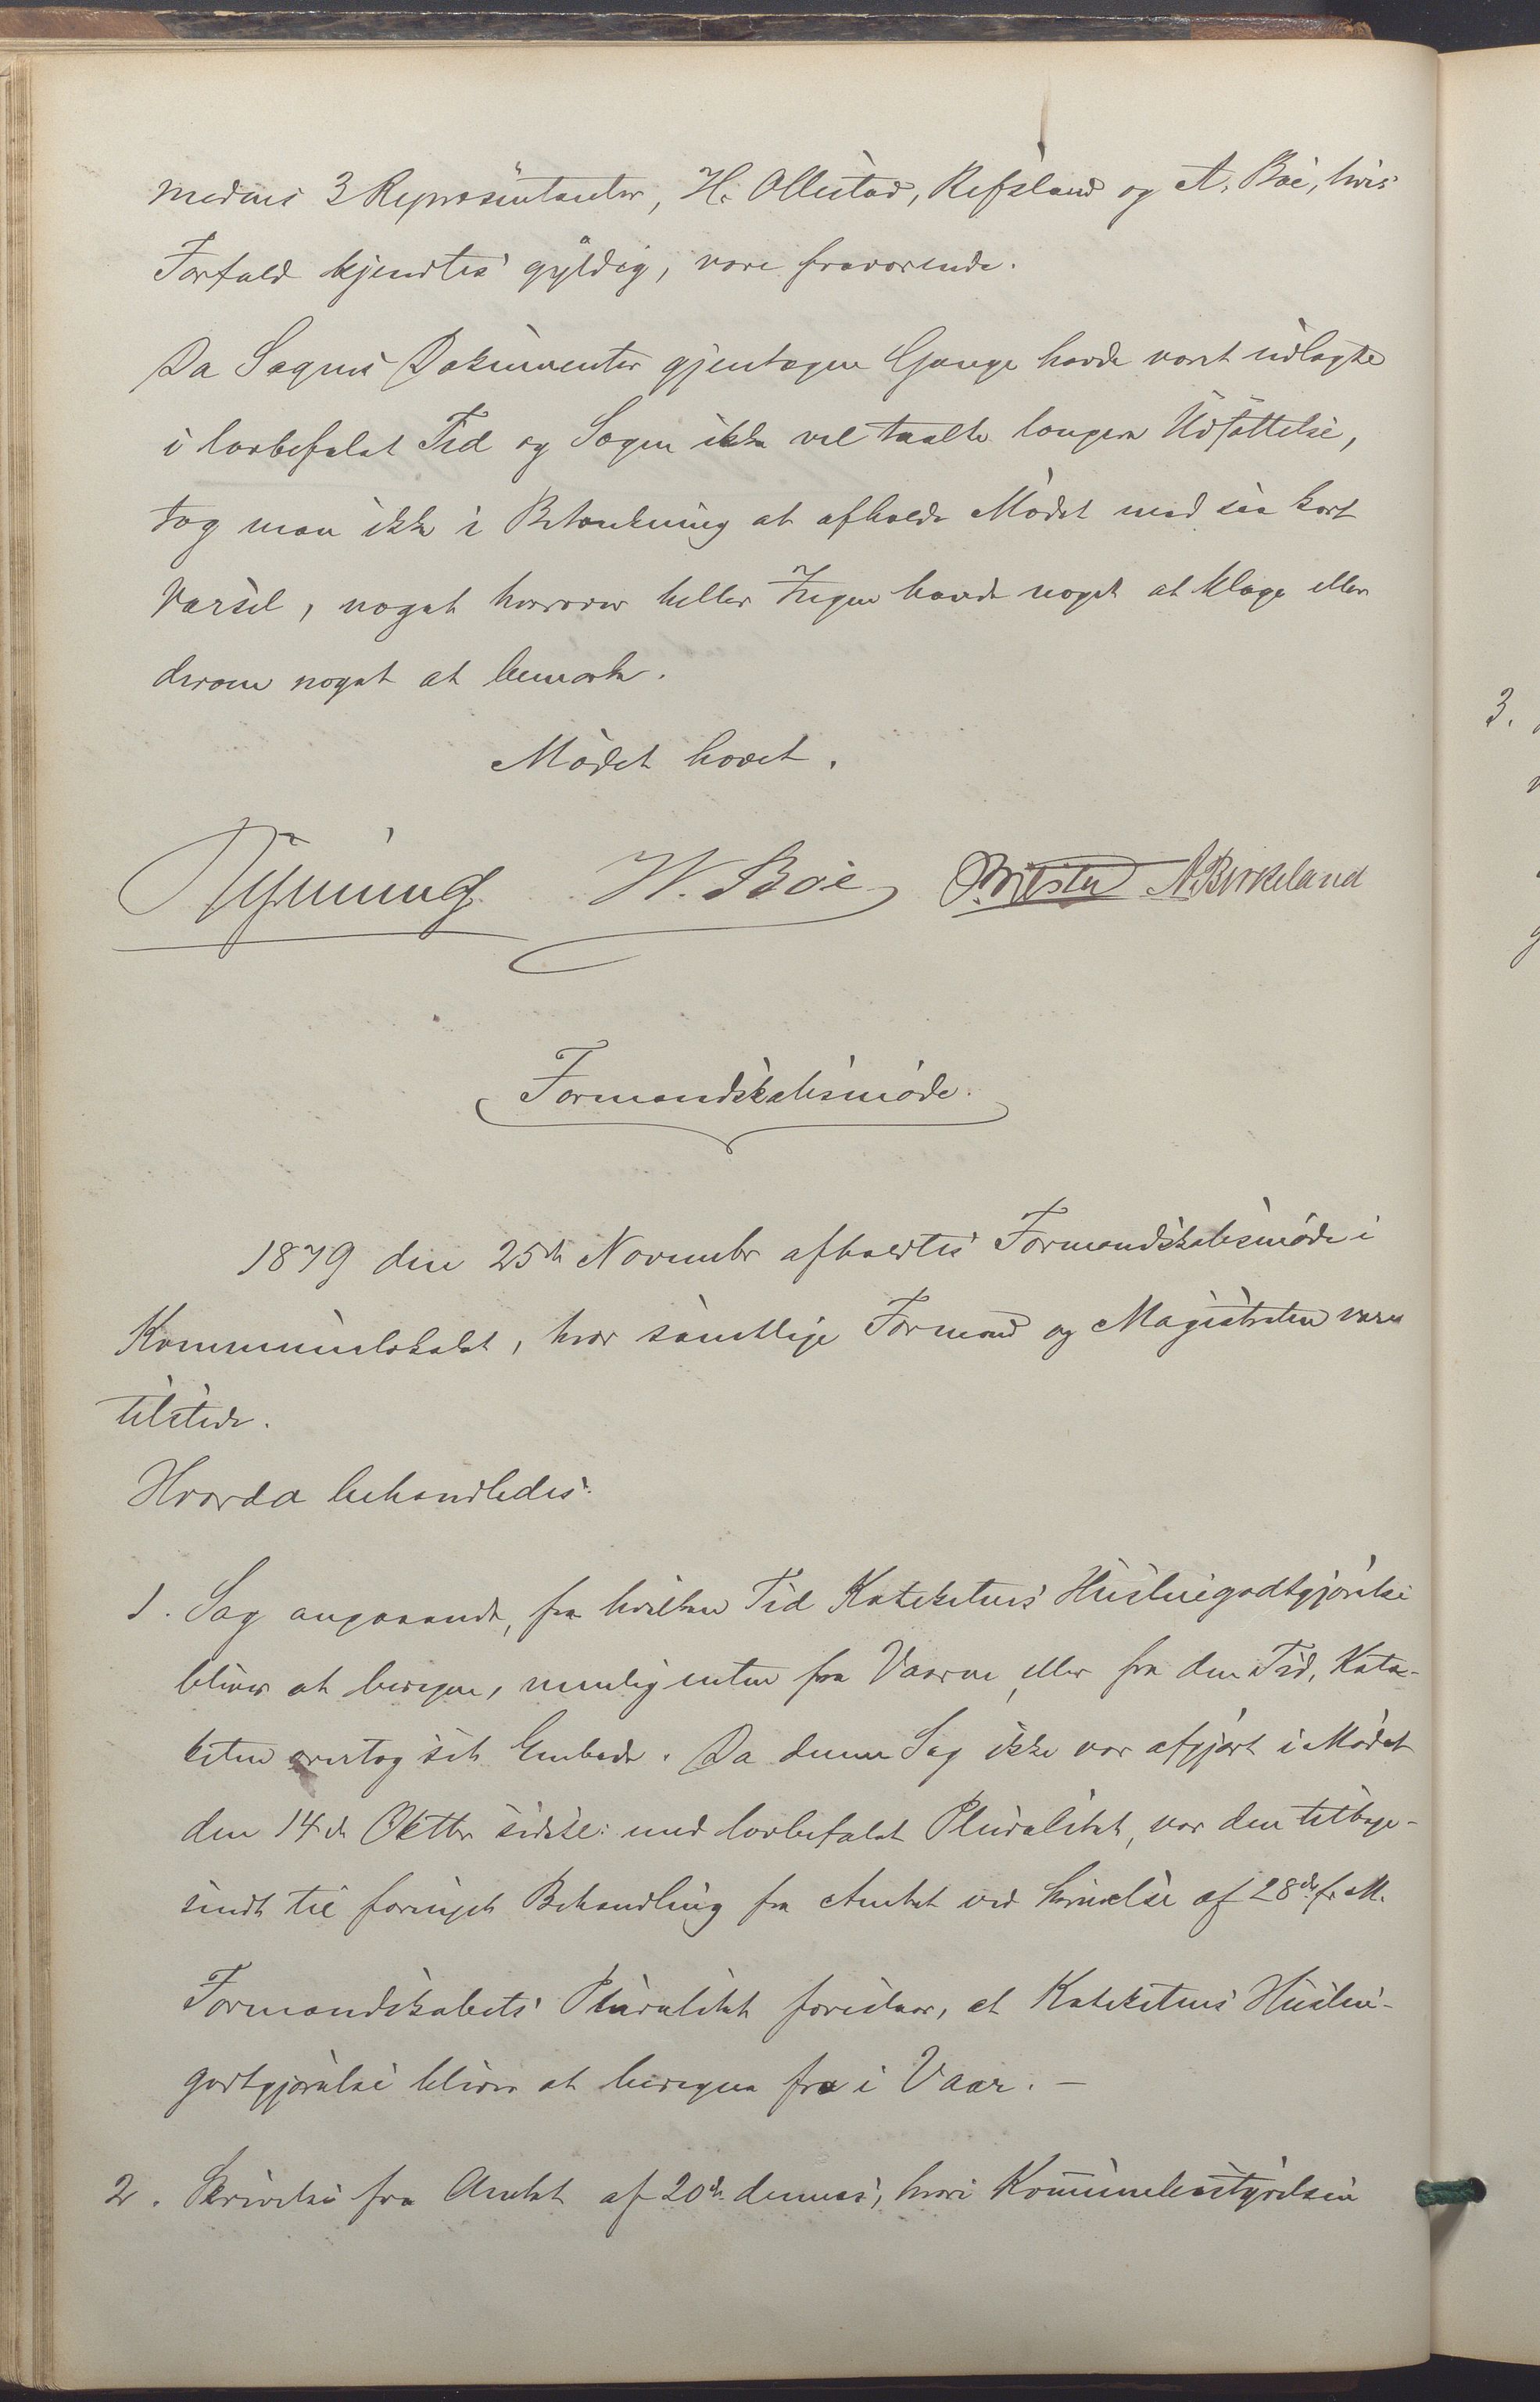 medens 3 Repræsentanter, H. Ollestad, Refsland og A. Bøe, hvis
Forfald kjendtes gyldig, vare fraværende.
Da Sagens Dokumenter gjentagne Gange havde været udlagte
i lovbefalet Tid og Sagen ikke vel taalte længere Udsættelse,
tog man ikke i Betænkning at afholde Mødet med saa kort
Varsel, noget hvorover heller Ingen havde noget at klage eller
derom noget at bemærke.
Mødet hævet.
W. Bøe A. Birkeland
Formandskabsmøde.
1879 den 25de Novembr afholdtes Formandskabsmøde i
Kommunelokalet, hvor samtlige Formænd og Magistraten vare
tilstede.
Hvorda behandledes:
1. Sag angaaende, fra hvilken Tid Kateketens Husleiegodtgjørelse
bliver at beregne, nemlig enten fra Vaaren eller fra den Tid, Kate-
keten overtog sit Embede. Da denne Sag ikke var afgjort i Mødet
den 14de Oktbr sidstl. med lovbefalet Pluralitet, var den tilbage-
sendt til fornyet Behandling fra Amtet ved Skrivelse af 28de f. M.
Formandskabets Pluralitet foreslaar, at Kateketens Husleie-
godtgjørelse bliver at beregne fra i Vaar. –
2. Skrivelse fra Amtet af 20de dennes, hvori Kommunebestyrelsen
3.